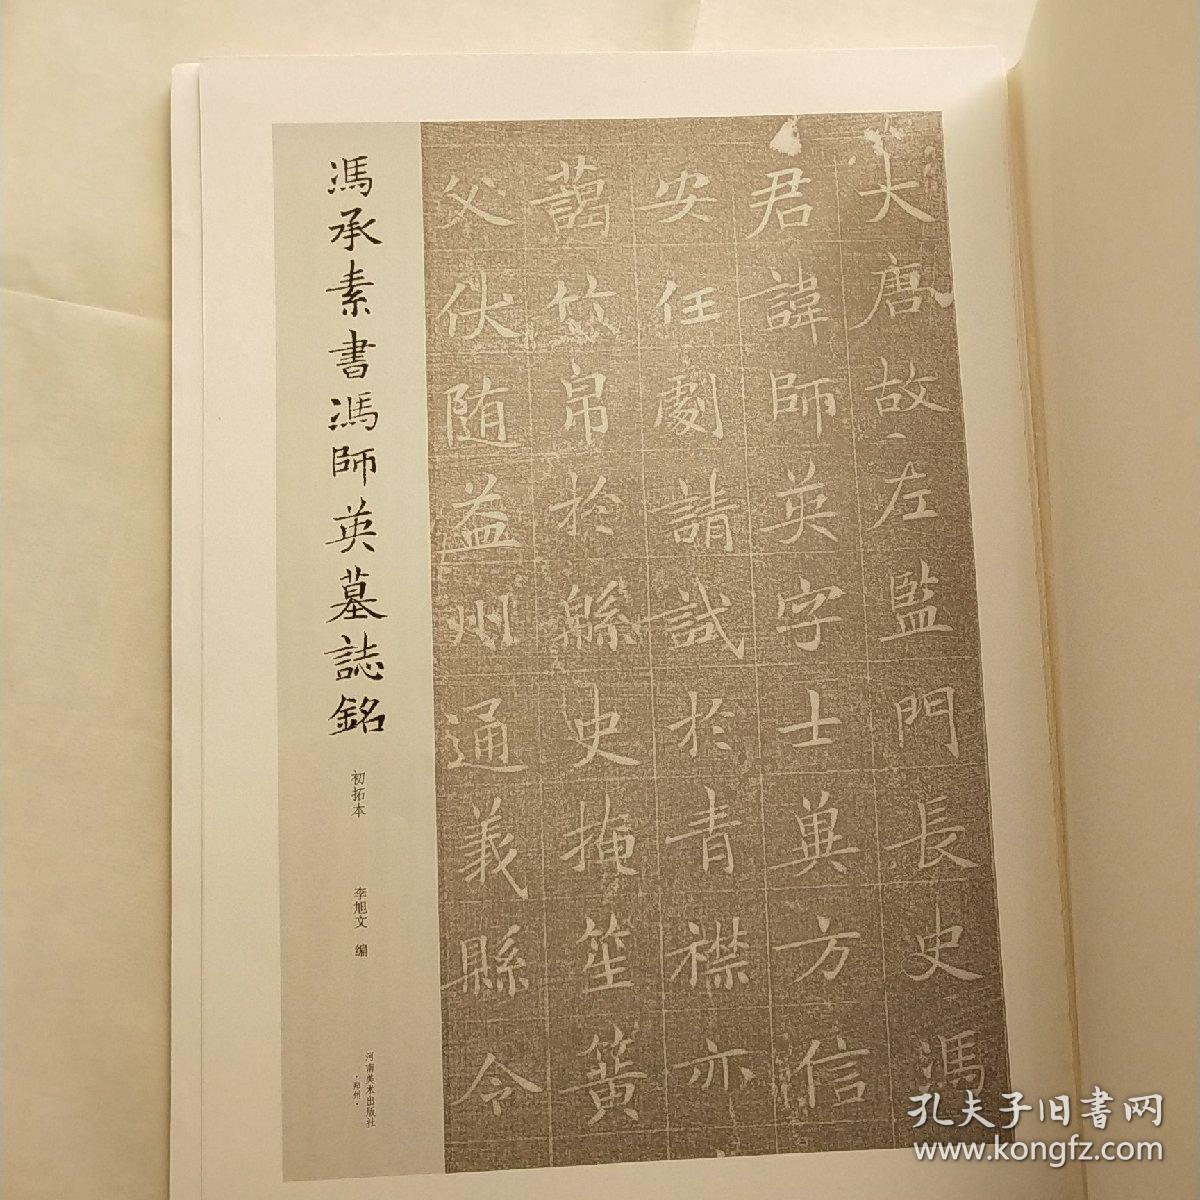 大唐故左監門長史馮
君諱師英字士兾方信
安任劇請試於青襟亦
蕌竹帛於縣史掩笙簧
父伏随益州通義縣令
馮承素書馮師英墓誌銘
初拓本
李旭文 编
河南美术出版社
·郑州·
孔夫子旧書网
www.kongfz.com